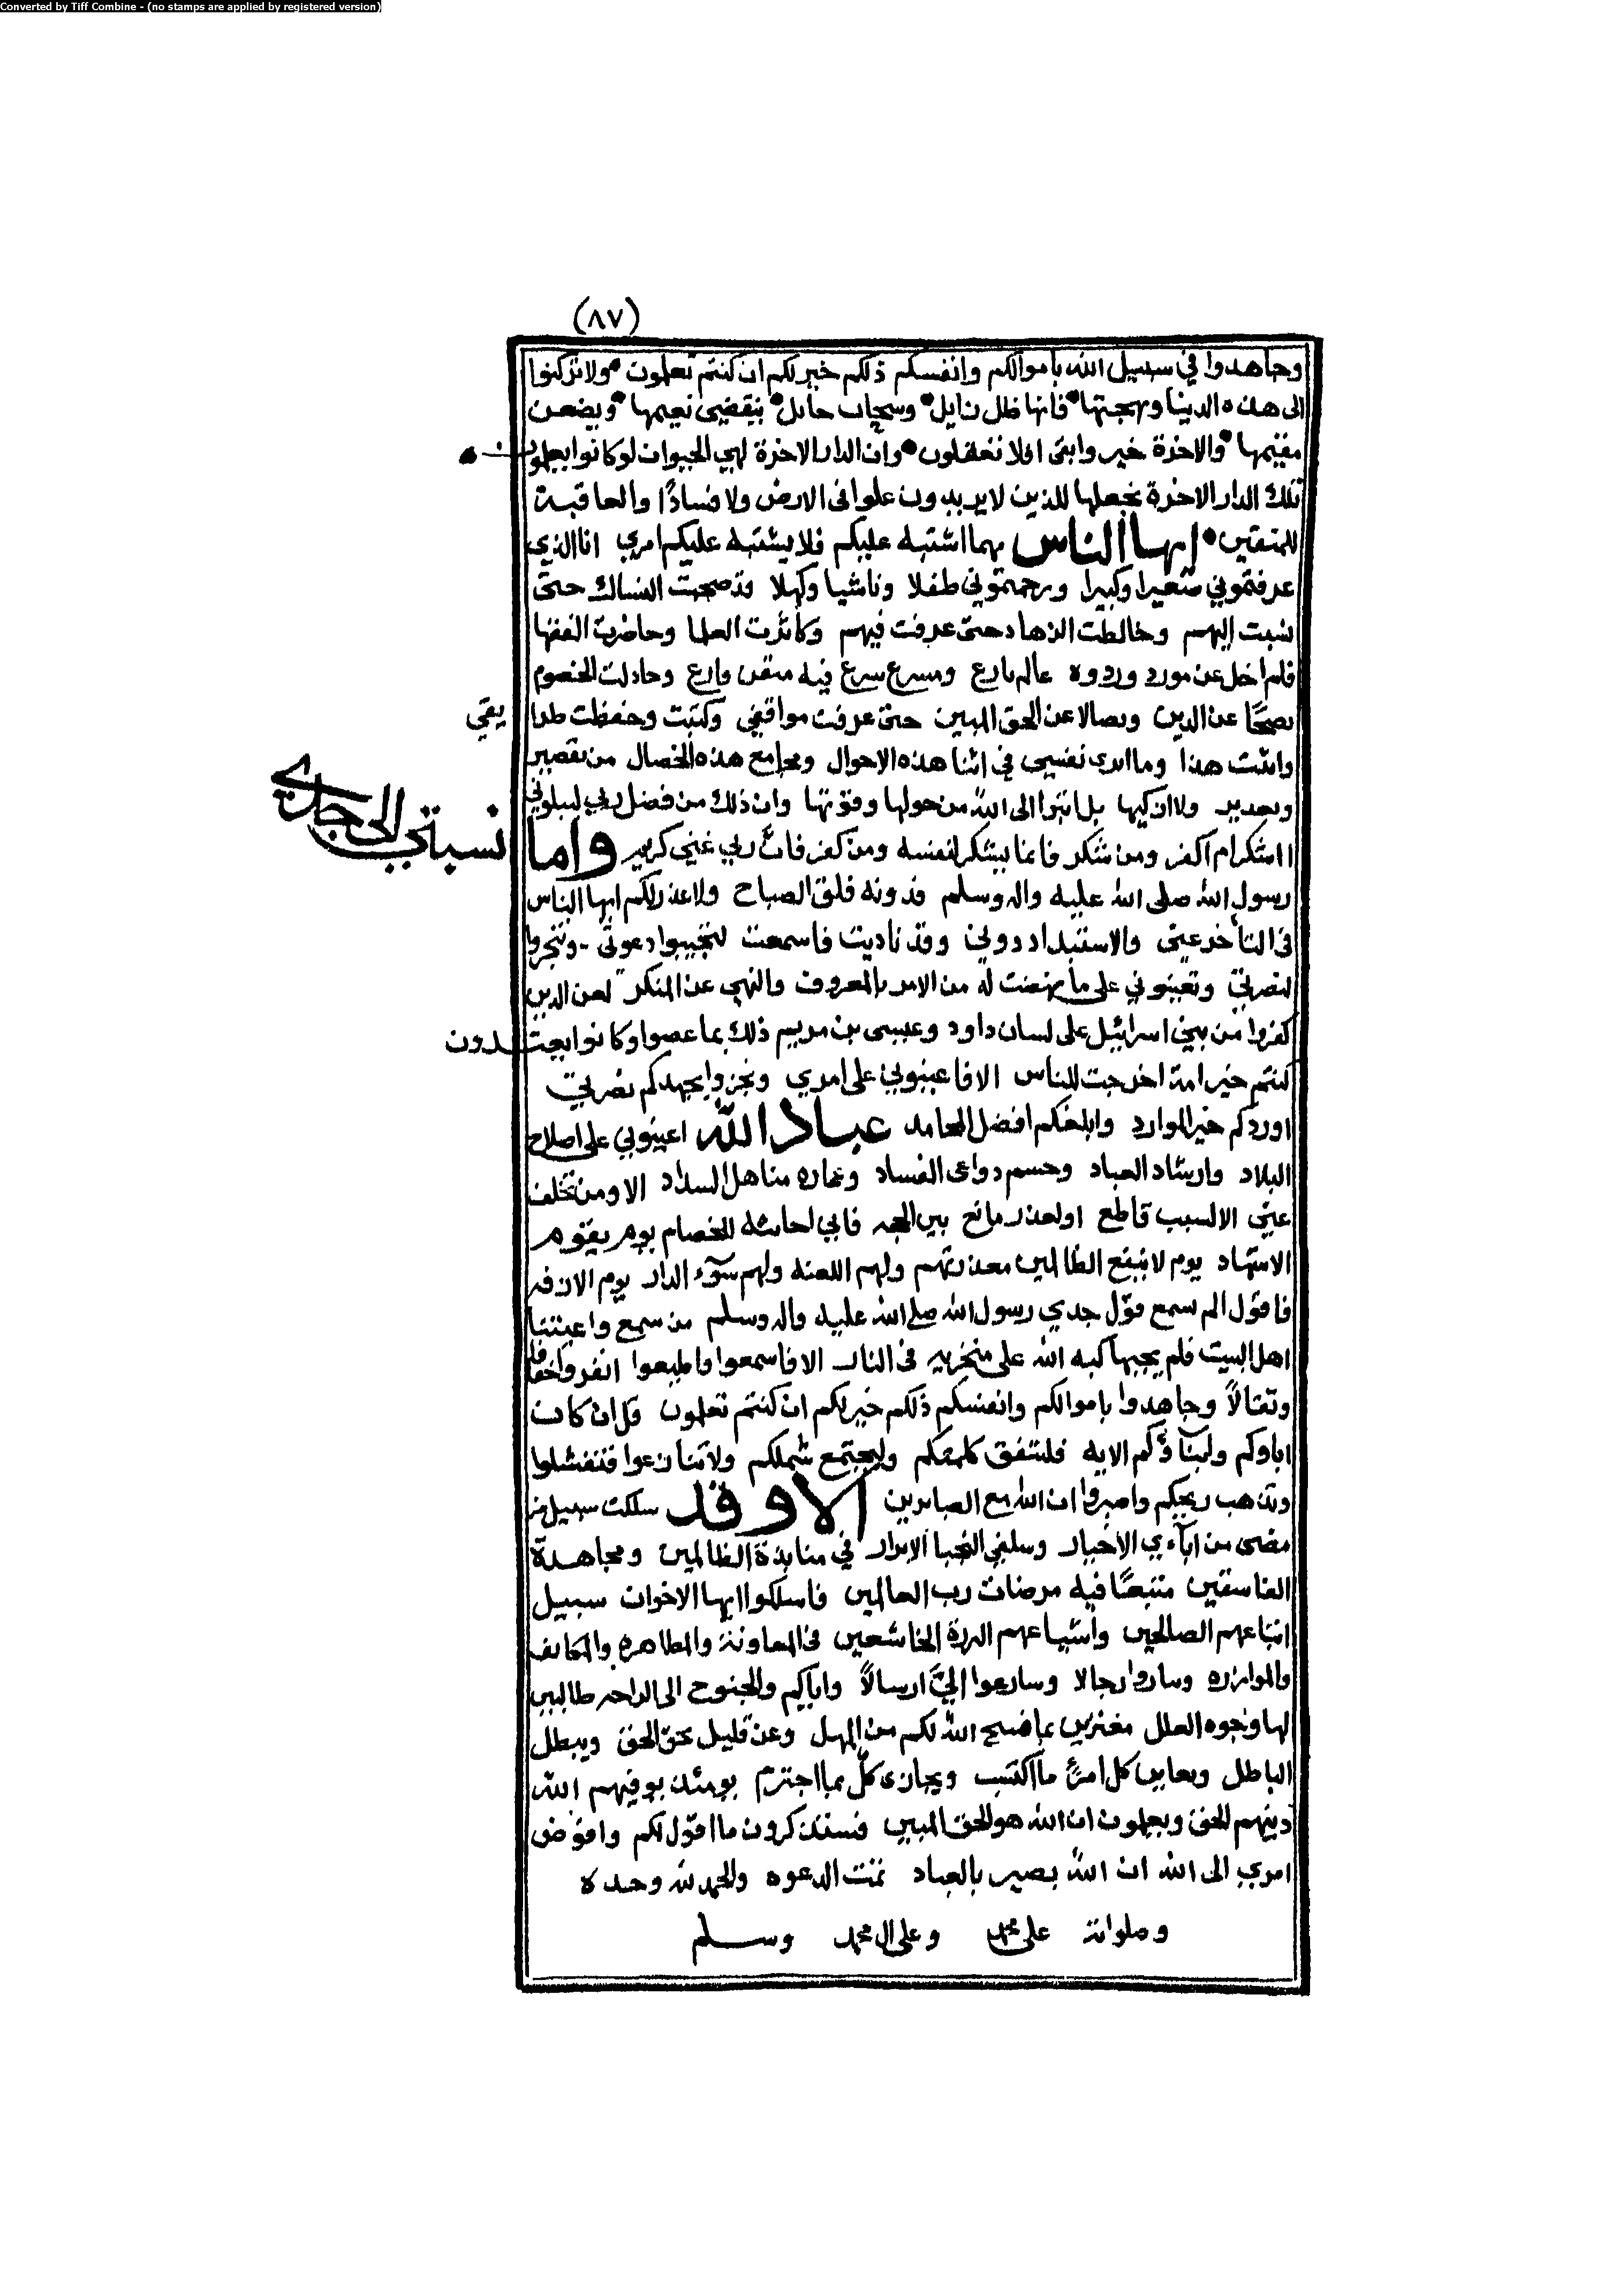 Converted by Tiff Combine - (no stamps are applied by registered version)
(٨٧)
وجاهدوا في سبيل الله باموالكم وانفسكم ذلكم خير لكم ان كنتم تعلمون ولا تركنوا
الى هذه الدنيا وبهجتها فانها ظل زايل وسحاب حايل ينقضي نعيمها ويضعن
مقيمها والاخرة خير وابقى افلا تعقلون وان الدار الاخرة لهي الحيوان لو كانوا يعلمون
تلك الدار الاخرة نجعلها للذين لا يريدون علوا في الارض ولا فسادًا والعاقبة
للمتقين ايها الناس مهما اشتبه عليكم فلا يشتبه عليكم امري انا الذي
عرفتموني صغيرا وكبيرا ورحمتموني طفلا وناشيا وكهلا قد صحبت النساك حتى
نسبت اليهم وخالطت الزهاد حتى عرفت فيهم وكاثرت العلما وحاضرت الفقها
فلم اخل عن مورد ورده عالم بارع ومشرع شرع فيه متقن فارع وجادلت الخصوم
نصحًا عن الدين ونضالا عن الحق المبين حتى عرفت مواقفي وكتبت وحفظت طرا يقي
واثبت هذا وما ابرئ نفسي في اثنا هذه الاحوال ومجامع هذه الخصال من تقصير
وتعذير ولا ازكيها بل ابرا الى الله من حولها وقوتها وان ذلك من فضل ربي ليبلوني
ااشكر ام اكفر ومن شكر فانما يشكر لنفسه ومن كفر فان ربي غني كريم واما نسبتي الى جدي
رسول الله صلى الله عليه واله وسلم فدونه فلق الصباح ولا عذر لكم ايها الناس
في التأخر عني والاستبداد دوني وقد ناديت فاسمعت لتجيبوا دعوتي وتتجردوا
لنصرتي وتعينوني على ما نهضت له من الامر بالمعروف والنهي عن المنكر لعن الذين
كفروا من بني اسرائيل على لسان داود وعيسى بن مريم ذلك بما عصوا وكانوا يعتدون
كنتم خير امة اخرجت للناس الا فاعينوني على امري وبجهدكم نصرتي
اوردكم خير الموارد وابلغكم افضل المحامد عباد الله اعينوني على اصلاح
البلاد وارشاد العباد وحسم دواعي الفساد وعماره مناهل السداد الا ومن تخلف
عني الا لسبب قاطع او لعذر مانع بين الحجه فاني لجاثيه للخصام يوم يقوم
الاشهاد يوم لا ينفع الظالمين معذرتهم ولهم اللعنه ولهم سوء الدار يوم الازفه
فاقول الم تسمع قول جدي رسول الله صلى الله عليه واله وسلم من سمع واعيتنا
اهل البيت فلم يجبها كبه الله على منخريه في النار الا فاسمعوا واطيعوا انفروا خفافا
وثقالاً وجاهدوا باموالكم وانفسكم ذلكم خير لكم ان كنتم تعلمون قل ان كان
اباوكم وابناؤكم الايه فلتتفق كلمتكم وليجتمع شملكم ولا تنازعوا فتفشلوا
وتذهب ريحكم واصبروا ان الله مع الصابرين الا وقد سلكت سبيل من
مضى من آباءي الاخيار وسلفي النجبا الابرار في منابذة الظالمين ومجاهدة
الفاسقين متبعًا فيه مرضات رب العالمين فاسلكوا ايها الاخوان سبيل
اتباعهم الصالحين واشياعهم البررة الخاشعين في المعاونة والمظاهره والمكانفه
والموازره وسارعوا رجالا وسارعوا اليَّ ارسالاً واياكم والجنوح الى الراحه طالبين
لها وجوه العلل مغترين بما فسح الله لكم من المهل وعن قليل يحق الحق ويبطل
الباطل ويعاين كل امرئ ما اكتسب ويجازى كلّ بما اجترم يومئذ يوفيهم الله
دينهم الحق ويعلمون ان الله هو الحق المبين فستذكرون ما اقول لكم وافوّض
امري الى الله ان الله بصير بالعباد تمت الدعوه والحمد لله وحده
وصلواته على محمد وعلى ال محمد وسلم